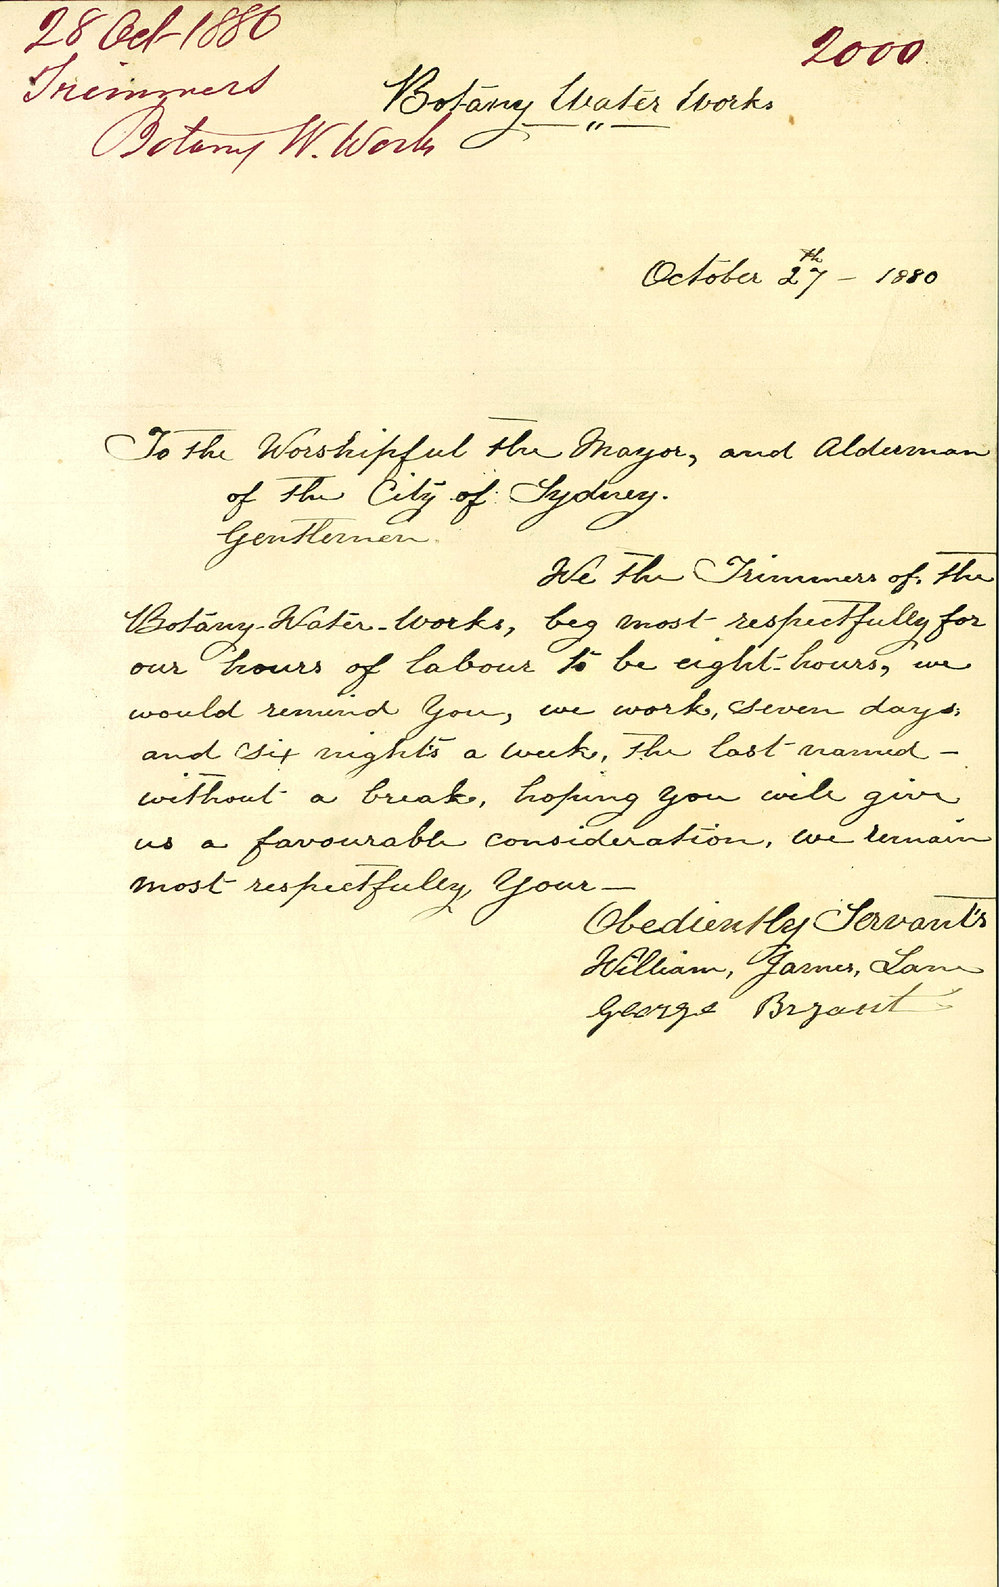 28 Oct 1880
2000
Trimmers
Botany W. Works
Botany Water Works
"
October 27th - 1880
To the Worshipful the Mayor, and Alderman
of the City of Sydney.
Gentlemen.
We the Trimmers of the
Botany-Water-Works, beg most respectfully for
our hours of labour to be eight-hours, we
would remind You, we work, seven days,
and six night's a week, the last named -
without a break, hoping you will give
us a favourable consideration, we remain
most respectfully Your -
Obediently Servant's
William, James, Lane
George Bryant